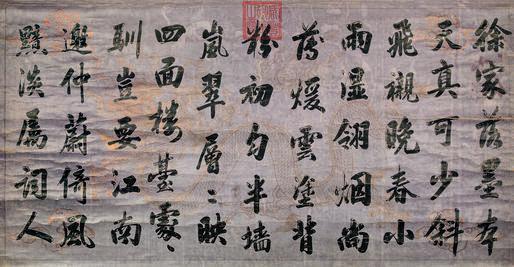 徐家落墨本
天真可少斜
飛襯晚春小
雨濕翎烟尚
薄煖雲塗背
粉初勻半墻
嵐翠層〻映
四面樓臺處〻
馴豈要江南
邀仲蔚倚風
黯淡属詞人